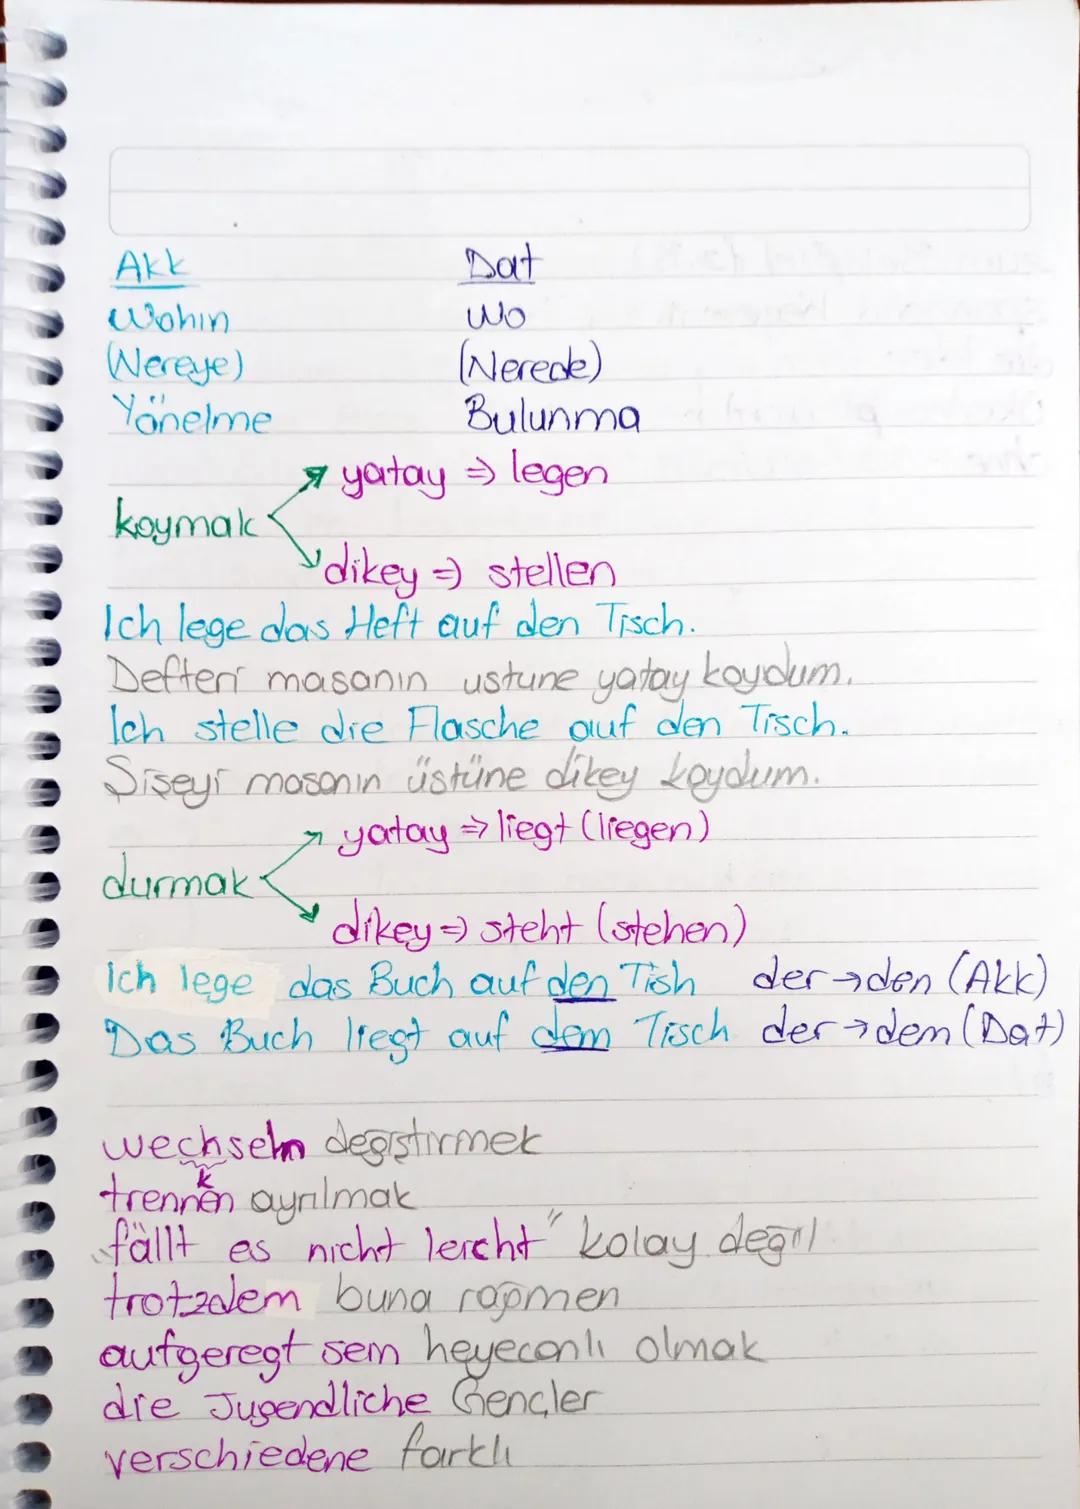 Akk Dat
Wohin Wo
(Nereye) (Nerede)
Yönelme Bulunma
yatay => legen
koymak
dikey => stellen
Ich lege das Heft auf den Tisch.
Defteri masanın ustune yatay koydum.
Ich stelle die Flasche auf den Tisch.
Şişeyi masanın üstüne dikey koydum.
yatay => liegt (liegen)
durmak
dikey => steht (stehen)
Ich lege das Buch auf den Tish der → den (Akk)
Das Buch liegt auf dem Tisch der → dem (Dat)
wechseln degıştırmek
k
trennen ayrılmak
"fällt es nicht leicht" kolay değil
trotzdem buna rağmen
aufgeregt sein heyecanlı olmak
die Jugendliche Gençler
verschiedene farklı